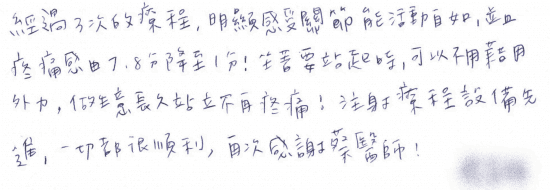 經過3次的療程,明顯感受關節能活動自如,並且
疼痛感由7.8分降至1分!坐著要站起時,可以不用藉用
外力,做生意長久站立不再疼痛!注射療程設備先
進,一切都很順利,再次感謝蔡醫師!